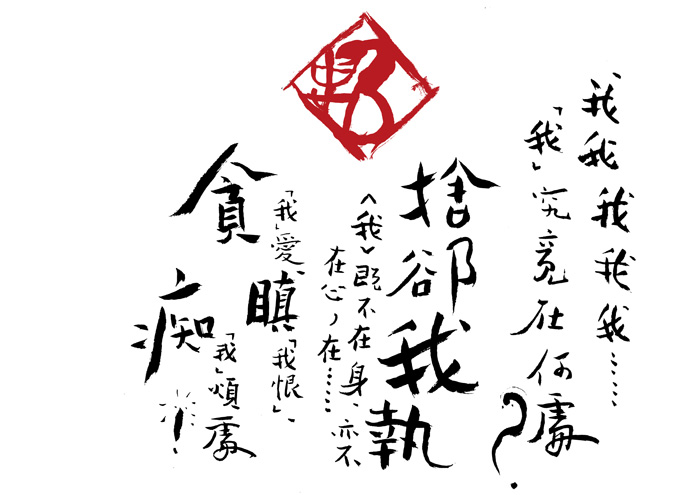 我我我我我……
「我」究竟在何處?
捨卻我執
〈我〉既不在身、亦不
在心,在……
「我」愛、
「我恨」、
「我」煩處
貪
瞋
痴!